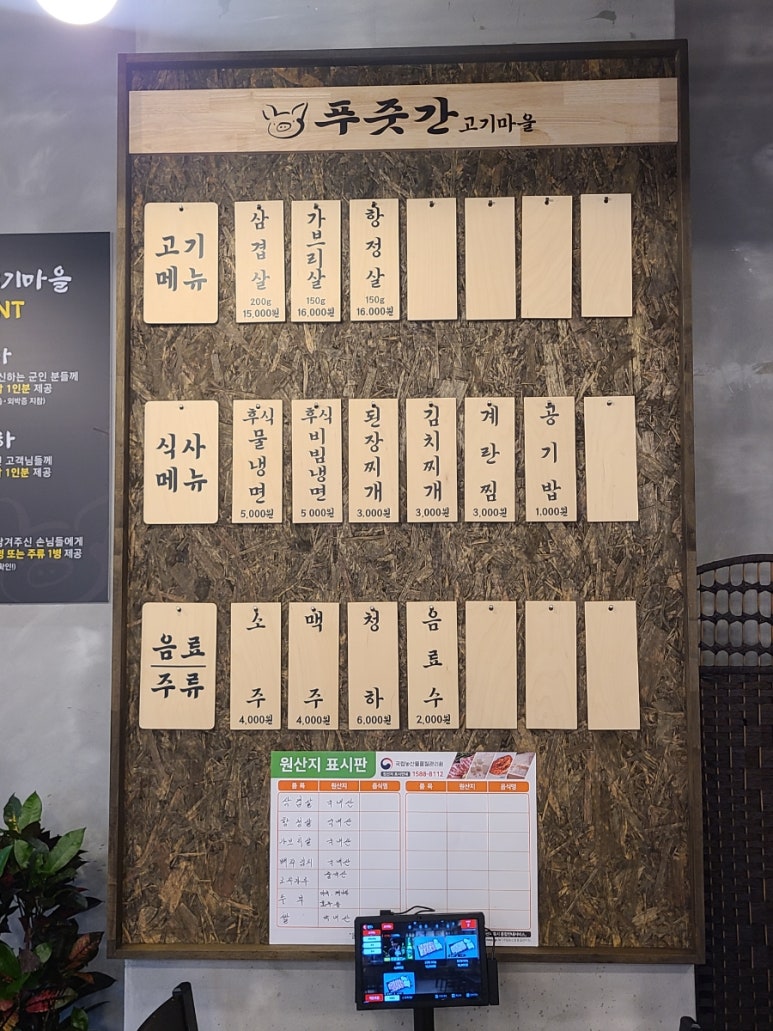 푸줏간 고기마을
고기
메뉴
삼겹살
200g
15,000원
가브리살
150g
16,000원
항정살
150g
16,000원
식사
메뉴
후식
물냉면
5,000원
후식
비빔냉면
5,000원
된장찌개
3,000원
김치찌개
3,000원
계란찜
3,000원
공기밥
1,000원
음료
주류
소주
4,000원
맥주
4,000원
청하
6,000원
음료수
2,000원
기마을
NT
신하는 군인 분들께
1인분 제공
외박증 지참)
하
고객님들께
1인분 제공
남겨주신 손님들에게
또는 주류 1병 제공
원산지 표시판
국립농산물품질관리원
1588-8112
품 목 원산지 음식명 품 목 원산지 음식명
삼겹살 국내산
항정살 국내산
가브리살 국내산
배추김치 국내산
고춧가루 중국산
두부
쌀 국내산